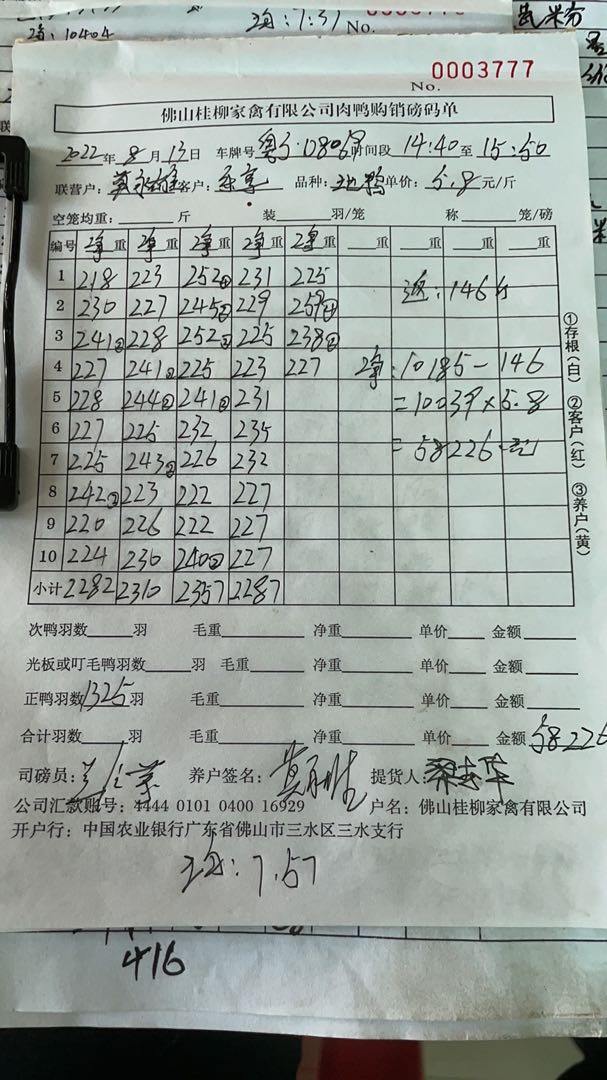 净: 10404
均: 7.31 No.
No.
0003777
佛山桂柳家禽有限公司肉鸭购销磅码单
2022年8月13日 车牌号 时间段 14:40 至 15:50
联营户: 客户: 品种: 单价: 5.8 元/斤
空笼均重: 斤 装 羽/笼 称 笼/磅
编号 净重 净重 净重 净重 净重 重 重 重
1 218 223 252② 231 225 返: 146斤
2 230 227 245② 229 259
3 241② 228 252② 225 238②
4 227 241② 225 223 227 净: 10185-146
5 228 244② 241② 231 =10039×5.8
6 227 225 232 235 =58226元
7 225 243② 226 232
8 242② 223 222 227
9 220 226 222 227
10 224 230 240② 227
小计 2282 2310 2357 2287
①存根(白) ②客户(红) ③养户(黄)
次鸭羽数 羽 毛重 净重 单价 金额
光板或叮毛鸭羽数 羽 毛重 净重 单价 金额
正鸭羽数 1325 羽 毛重 净重 单价 金额
合计羽数 羽 毛重 净重 单价 金额 58226
司磅员: 养户签名: 提货人:
公司汇款账号: 4444 0101 0400 16929 户名: 佛山桂柳家禽有限公司
开户行: 中国农业银行广东省佛山市三水区三水支行
均: 7.57
416